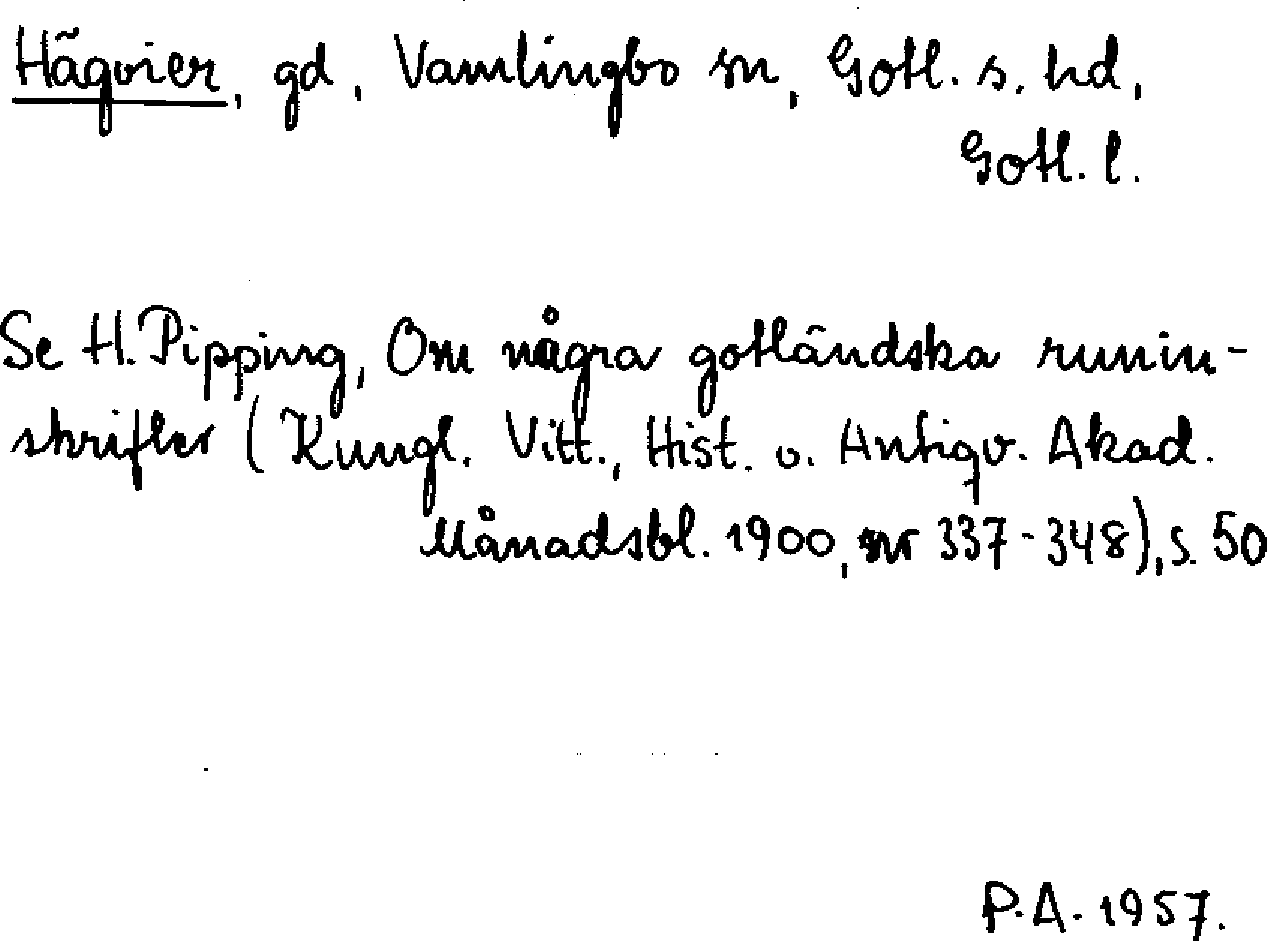 Hägvier, gd, Vamlingbo sn, Gotl. s. hd,
Gotl. l.
Se H. Pipping, Om några gotländska runin-
skrifter (Kungl. Vitt., Hist. o. Antiqv. Akad.
Månadsbl. 1900, nr 337-348), s. 50
P.A. 1957.